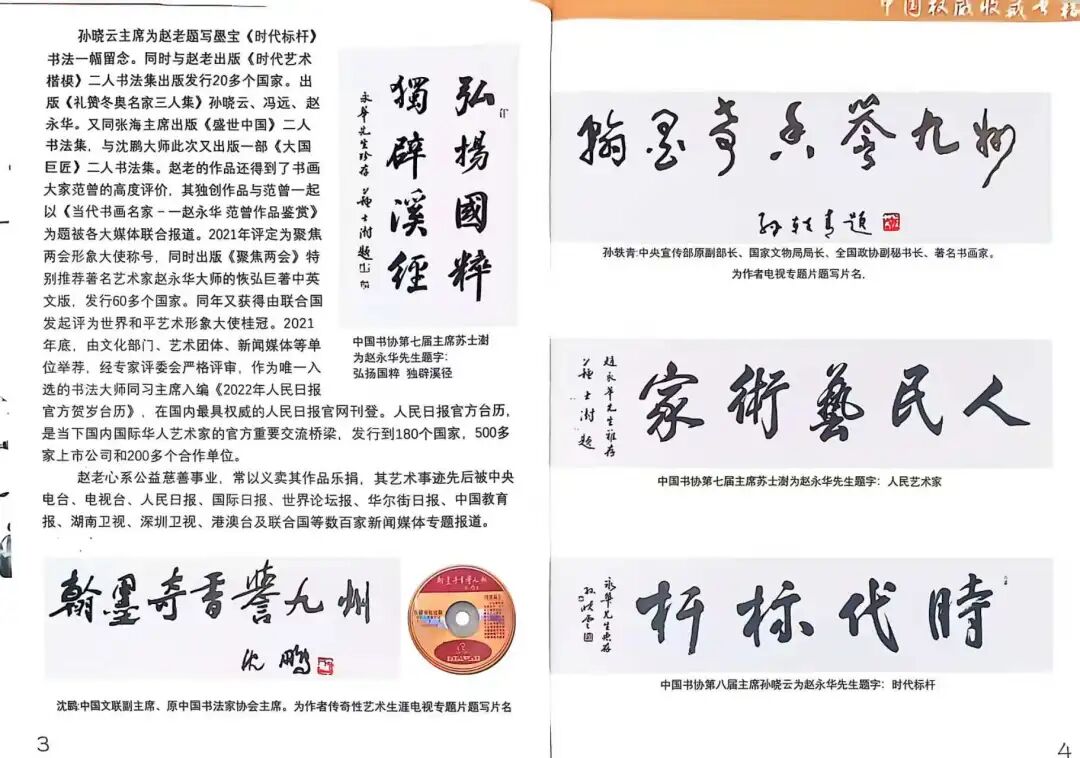 孙晓云主席为赵老题写墨宝《时代标杆》
书法一幅留念。同时与赵老出版《时代艺术
楷模》二人书法集出版发行20多个国家。出
版《礼赞冬奥名家三人集》孙晓云、冯远、赵
永华。又同张海主席出版《盛世中国》二人
书法集，与沈鹏大师此次又出版一部《大国
巨匠》二人书法集。赵老的作品还得到了书画
大家范曾的高度评价，其独创作品与范曾一起
以《当代书画名家－一赵永华 范曾作品鉴赏》
为题被各大媒体联合报道。2021年评定为聚焦
两会形象大使称号，同时出版《聚焦两会》特
别推荐著名艺术家赵永华大师的恢弘巨著中英
文版，发行60多个国家。同年又获得由联合国
发起评为世界和平艺术形象大使桂冠。2021
年底，由文化部门、艺术团体、新闻媒体等单
位举荐，经专家评委会严格评审，作为唯一入
选的书法大师同习主席入编《2022年人民日报
官方贺岁台历》，在国内最具权威的人民日报官网刊登。人民日报官方台历，
是当下国内国际华人艺术家的官方重要交流桥梁，发行到180个国家，500多
家上市公司和200多个合作单位。
赵老心系公益慈善事业，常以义卖其作品乐捐，其艺术事迹先后被中央
电台、电视台、人民日报、国际日报、世界论坛报、华尔街日报、中国教育
报、湖南卫视、深圳卫视、港澳台及联合国等数百家新闻媒体专题报道。
弘揚國粹
獨辟溪經
永華先生珍存 蘇士澍題
中国书协第七届主席苏士澍
为赵永华先生题字：
弘扬国粹 独辟溪径
翰墨奇香譽九州
沈鹏
沈鹏:中国文联副主席、原中国书法家协会主席。为作者传奇性艺术生涯电视专题片题写片名
3
中国权威收藏书稿
翰墨奇香譽九州
孙轶青题
孙轶青:中央宣传部原副部长、国家文物局局长、全国政协副秘书长、著名书画家。
为作者电视专题片题写片名.
人民藝術家
趙永華先生雅存
蘇士澍題
中国书协第七届主席苏士澍为赵永华先生题字：人民艺术家
時代标杆
永華先生惠存
孙晓雲
中国书协第八届主席孙晓云为赵永华先生题字：时代标杆
4